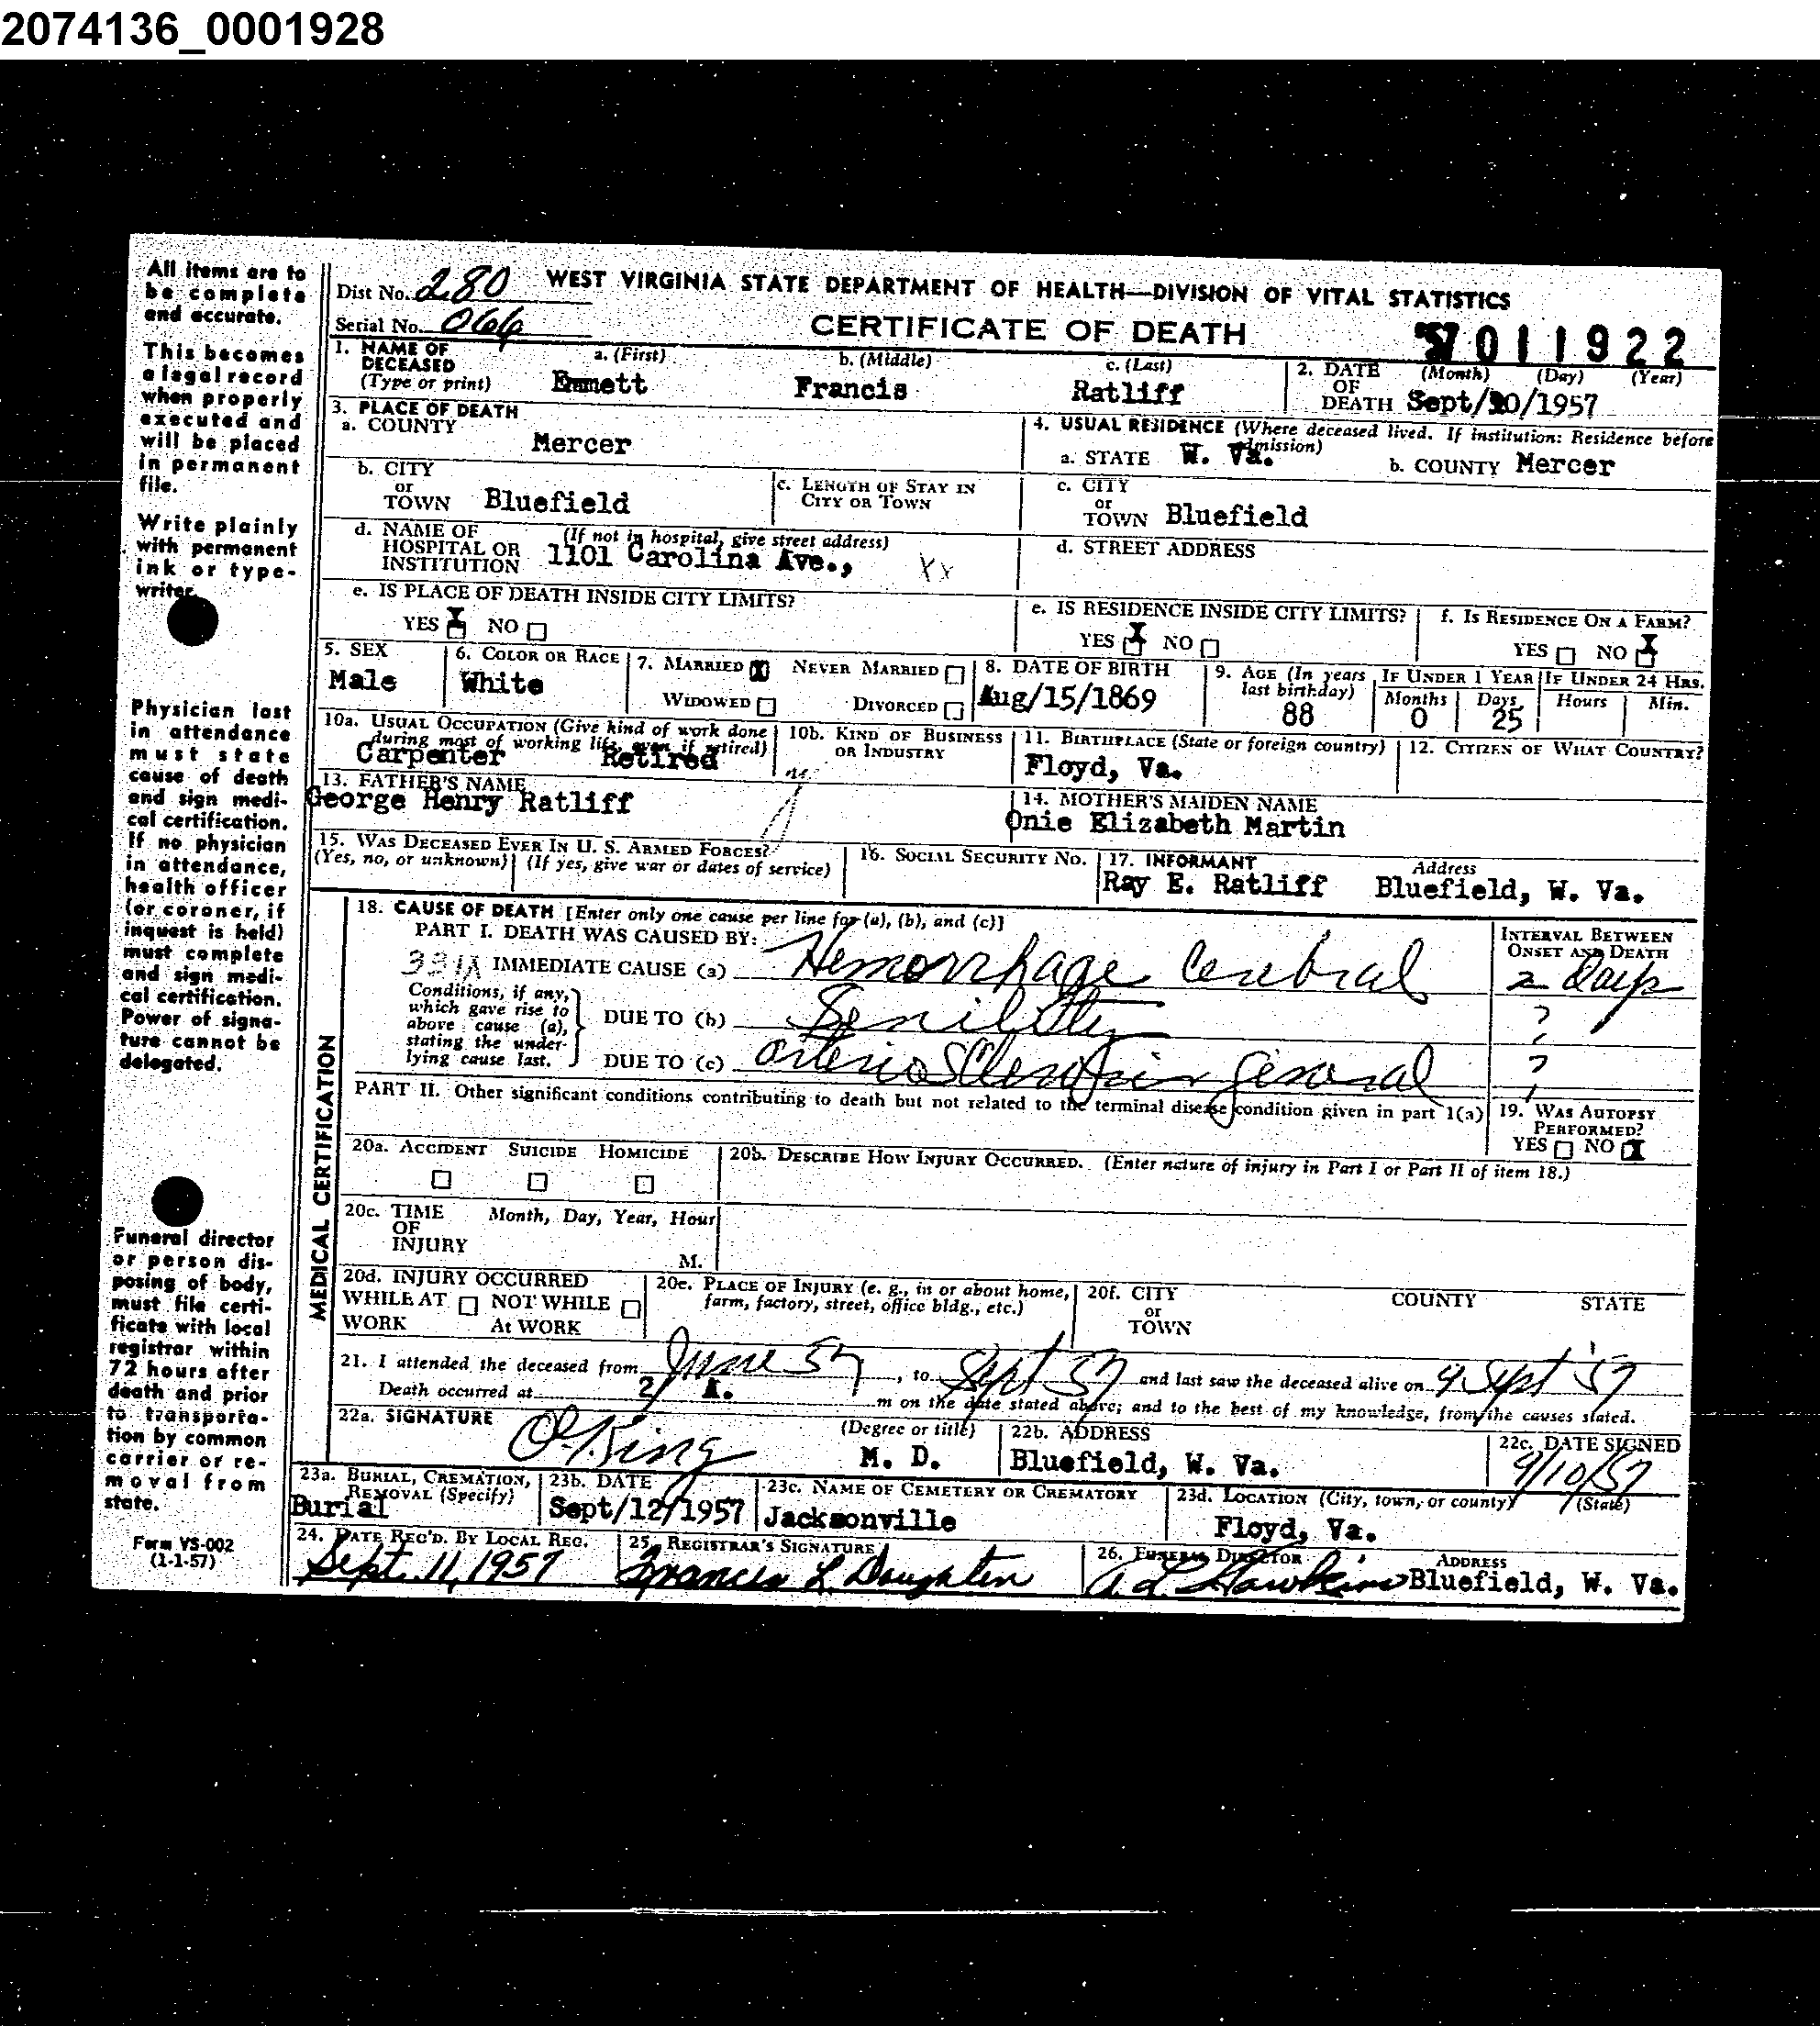 2074136_0001928
All items are to
be complete
and accurate.
This becomes
a legal record
when properly
executed and
will be placed
in permanent
file.
Write plainly
with permanent
ink or type-
writer.
Physician last
in attendance
must state
cause of death
and sign medi-
cal certification.
If no physician
in attendance,
health officer
(or coroner, if
inquest is held)
must complete
and sign medi-
cal certification.
Power of signa-
ture cannot be
delegated.
Funeral director
or person dis-
posing of body,
must file certi-
ficate with local
registrar within
72 hours after
death and prior
to transporta-
tion by common
carrier or re-
moval from
state.
Form VS-002
(1-1-57)
Dist No. 280 WEST VIRGINIA STATE DEPARTMENT OF HEALTH—DIVISION OF VITAL STATISTICS
Serial No. 066 CERTIFICATE OF DEATH 57 011922
1. NAME OF DECEASED (Type or print) a. (First) b. (Middle) c. (Last) 2. DATE OF DEATH (Month) (Day) (Year)
Emmett Francis Ratliff Sept/10/1957
3. PLACE OF DEATH 4. USUAL RESIDENCE (Where deceased lived. If institution: Residence before admission)
a. COUNTY Mercer a. STATE W. Va. b. COUNTY Mercer
b. CITY or TOWN Bluefield c. LENGTH OF STAY IN CITY OR TOWN c. CITY or TOWN Bluefield
d. NAME OF HOSPITAL OR INSTITUTION (If not in hospital, give street address) 1101 Carolina Ave., XX d. STREET ADDRESS
e. IS PLACE OF DEATH INSIDE CITY LIMITS? e. IS RESIDENCE INSIDE CITY LIMITS? f. IS RESIDENCE ON A FARM?
YES X NO YES X NO YES NO X
5. SEX 6. COLOR OR RACE 7. MARRIED X NEVER MARRIED 8. DATE OF BIRTH 9. AGE (In years last birthday) IF UNDER 1 YEAR IF UNDER 24 HRS.
Male White WIDOWED DIVORCED Aug/15/1869 88 Months 0 Days 25 Hours Min.
10a. USUAL OCCUPATION (Give kind of work done during most of working life, even if retired) 10b. KIND OF BUSINESS OR INDUSTRY 11. BIRTHPLACE (State or foreign country) 12. CITIZEN OF WHAT COUNTRY?
Carpenter Retired Floyd, Va.
13. FATHER'S NAME 14. MOTHER'S MAIDEN NAME
George Henry Ratliff Onie Elizabeth Martin
15. WAS DECEASED EVER IN U. S. ARMED FORCES? 16. SOCIAL SECURITY NO. 17. INFORMANT Address
(Yes, no, or unknown) (If yes, give war or dates of service) Ray E. Ratliff Bluefield, W. Va.
MEDICAL CERTIFICATION
18. CAUSE OF DEATH [Enter only one cause per line for (a), (b), and (c)] INTERVAL BETWEEN ONSET AND DEATH
PART I. DEATH WAS CAUSED BY:
331X IMMEDIATE CAUSE (a) Hemorrhage Cerebral 2 Days
Conditions, if any, which gave rise to above cause (a), stating the under-lying cause last.
DUE TO (b) Senility ?
DUE TO (c) Arterio Sclerosis General ?
PART II. Other significant conditions contributing to death but not related to the terminal disease condition given in part 1(a) 19. WAS AUTOPSY PERFORMED?
YES NO X
20a. ACCIDENT SUICIDE HOMICIDE 20b. DESCRIBE HOW INJURY OCCURRED. (Enter nature of injury in Part I or Part II of item 18.)
20c. TIME OF INJURY Month, Day, Year, Hour M.
20d. INJURY OCCURRED WHILE AT WORK NOT WHILE At WORK 20e. PLACE OF INJURY (e. g., in or about home, farm, factory, street, office bldg., etc.) 20f. CITY or TOWN COUNTY STATE
21. I attended the deceased from June 57, to Sept 57 and last saw the deceased alive on 9 Sept '57
Death occurred at 2 A. m on the date stated above; and to the best of my knowledge, from the causes stated.
22a. SIGNATURE (Degree or title) 22b. ADDRESS 22c. DATE SIGNED
King M. D. Bluefield, W. Va. 9/10/57
23a. BURIAL, CREMATION, REMOVAL (Specify) 23b. DATE 23c. NAME OF CEMETERY OR CREMATORY 23d. LOCATION (City, town, or county) (State)
Burial Sept/12/1957 Jacksonville Floyd, Va.
24. DATE REC'D. BY LOCAL REG. 25. REGISTRAR'S SIGNATURE 26. FUNERAL DIRECTOR ADDRESS
Sept. 11, 1957 Frances L. Doughten A L Hawkins Bluefield, W. Va.